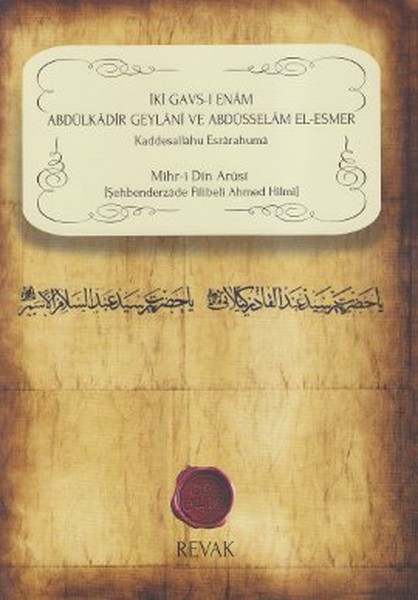 İKİ GAVS-I ENÂM
ABDÜLKÂDİR GEYLÂNÎ VE ABDÜSSELÂM EL-ESMER
Kaddesallâhu Esrârahumâ
Mihr-i Din Arûsî
[Şehbenderzâde Filibeli Ahmed Hilmi]
يا حضرت سيد عبد القادر كيلاني يا حضرت سيد عبد السلام الاسمر
REVAK